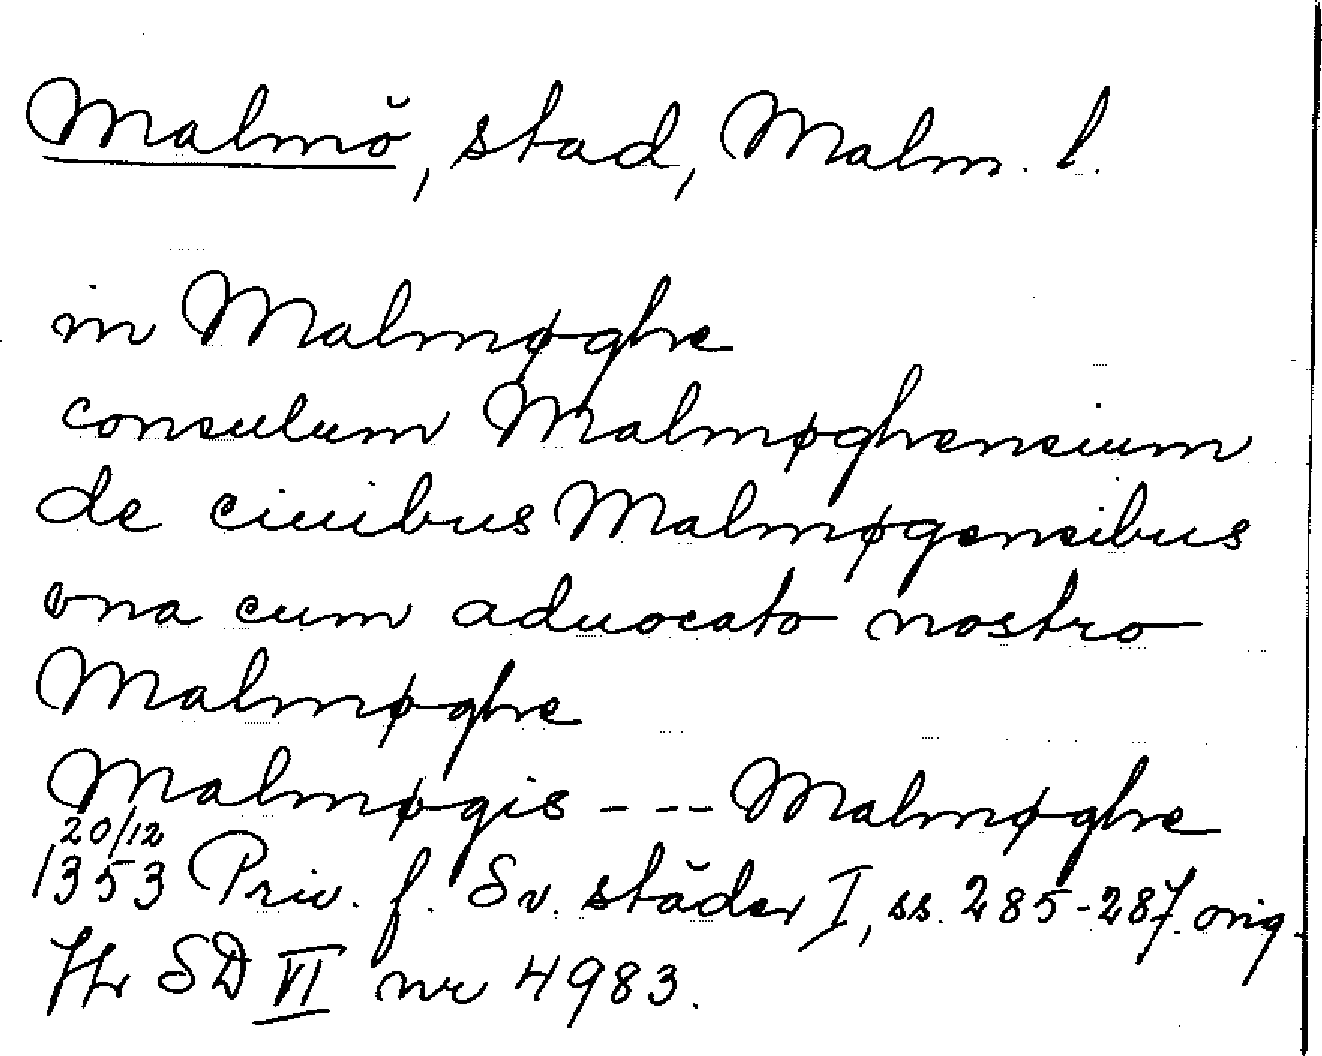 Malmö, stad, Malm. l.
in Malmøghe
consulum Malmøghensium
de ciuibus Malmøgensibus
vna cum aduocato nostro
Malmøghe
Malmøgis - - - Malmøghe
20/12
1353 Priv. f. Sv. städer I, ss. 285-287. orig.
Jfr SD VI nr 4983.